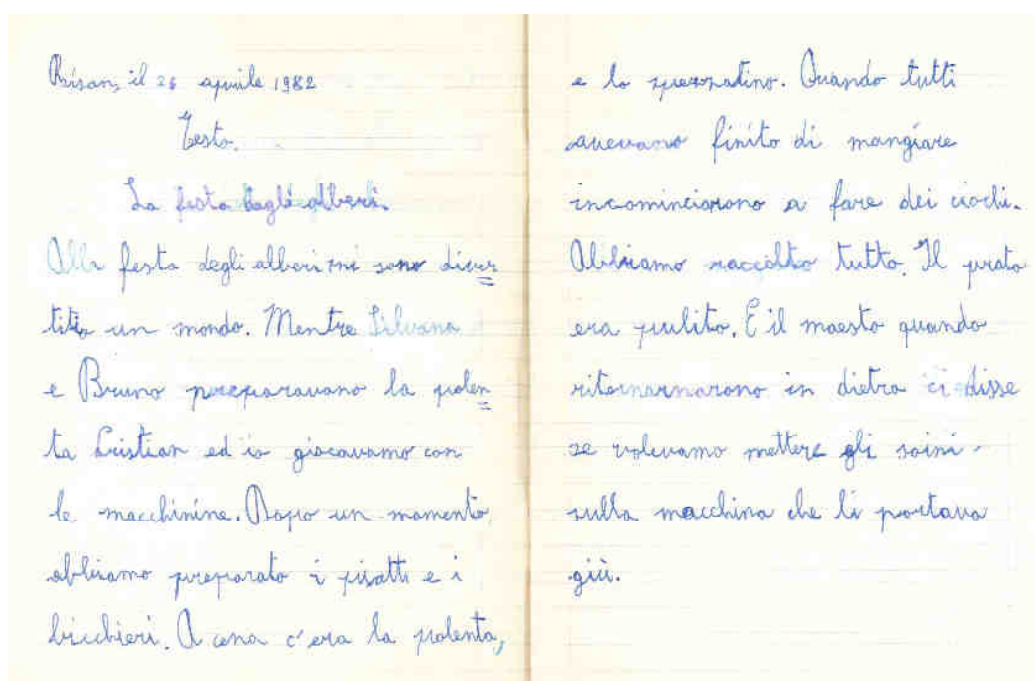 il 26 aprile 1982
Testo.
La festa degli alberi.
Alla festa degli alberi mi sono diver
titio un mondo. Mentre Silvana
e Bruno preparavano la polen
ta Cristian ed io giocavamo con
le macchinine. Dopo un momento,
abbiamo preparato i piatti e i
bicchieri. A cena c'era la polenta,
e lo spezzatino. Quando tutti
avevano finito di mangiare
incominciarono a fare dei ciochi.
Abbiamo raccolto tutto. Il prato
era pulito. E il maesto quando
ritornarnarono in dietro ci disse
se volevamo mettere gli saini
sulla macchina che li portava
giù.